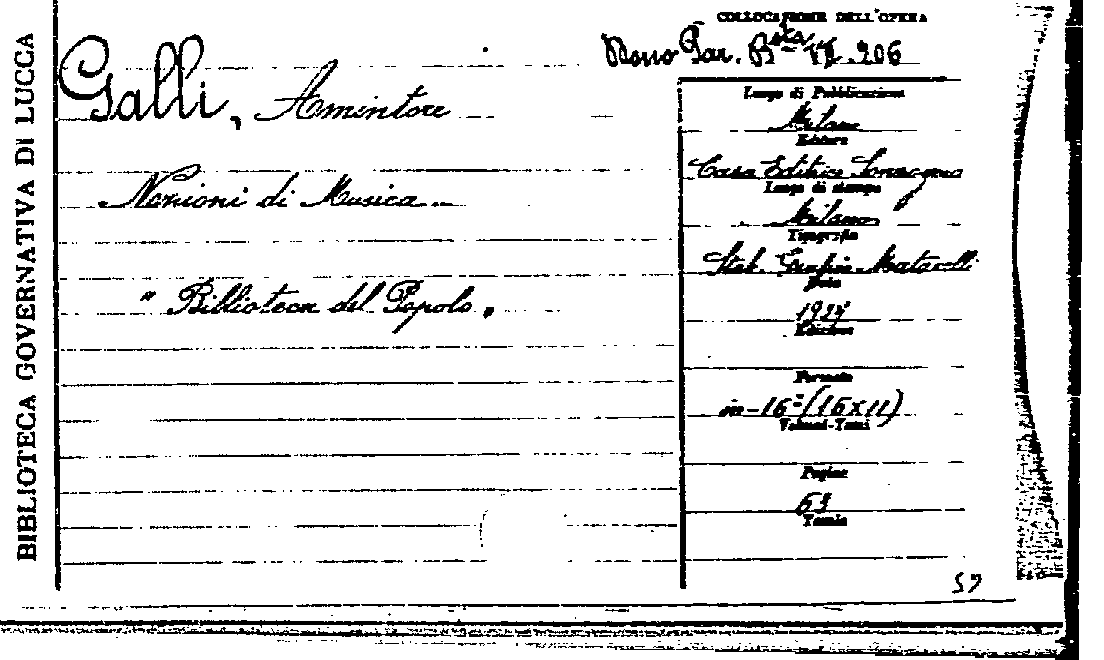 BIBLIOTECA GOVERNATIVA DI LUCCA
COLLOCAZIONE DELL'OPERA
Bsta VII. 206
Galli, Amintore
Nozioni di Musica
" Biblioteca del Popolo "
Luogo di Pubblicazione
Milano
Editore
Casa Editrice Sonzogno
Luogo di stampa
Milano
Tipografia
Stab. Grafico Matarelli
Data
Edizione
Formato
in-16º (16x11)
Volumi-Tomi
Pagine
63
Tavole
57